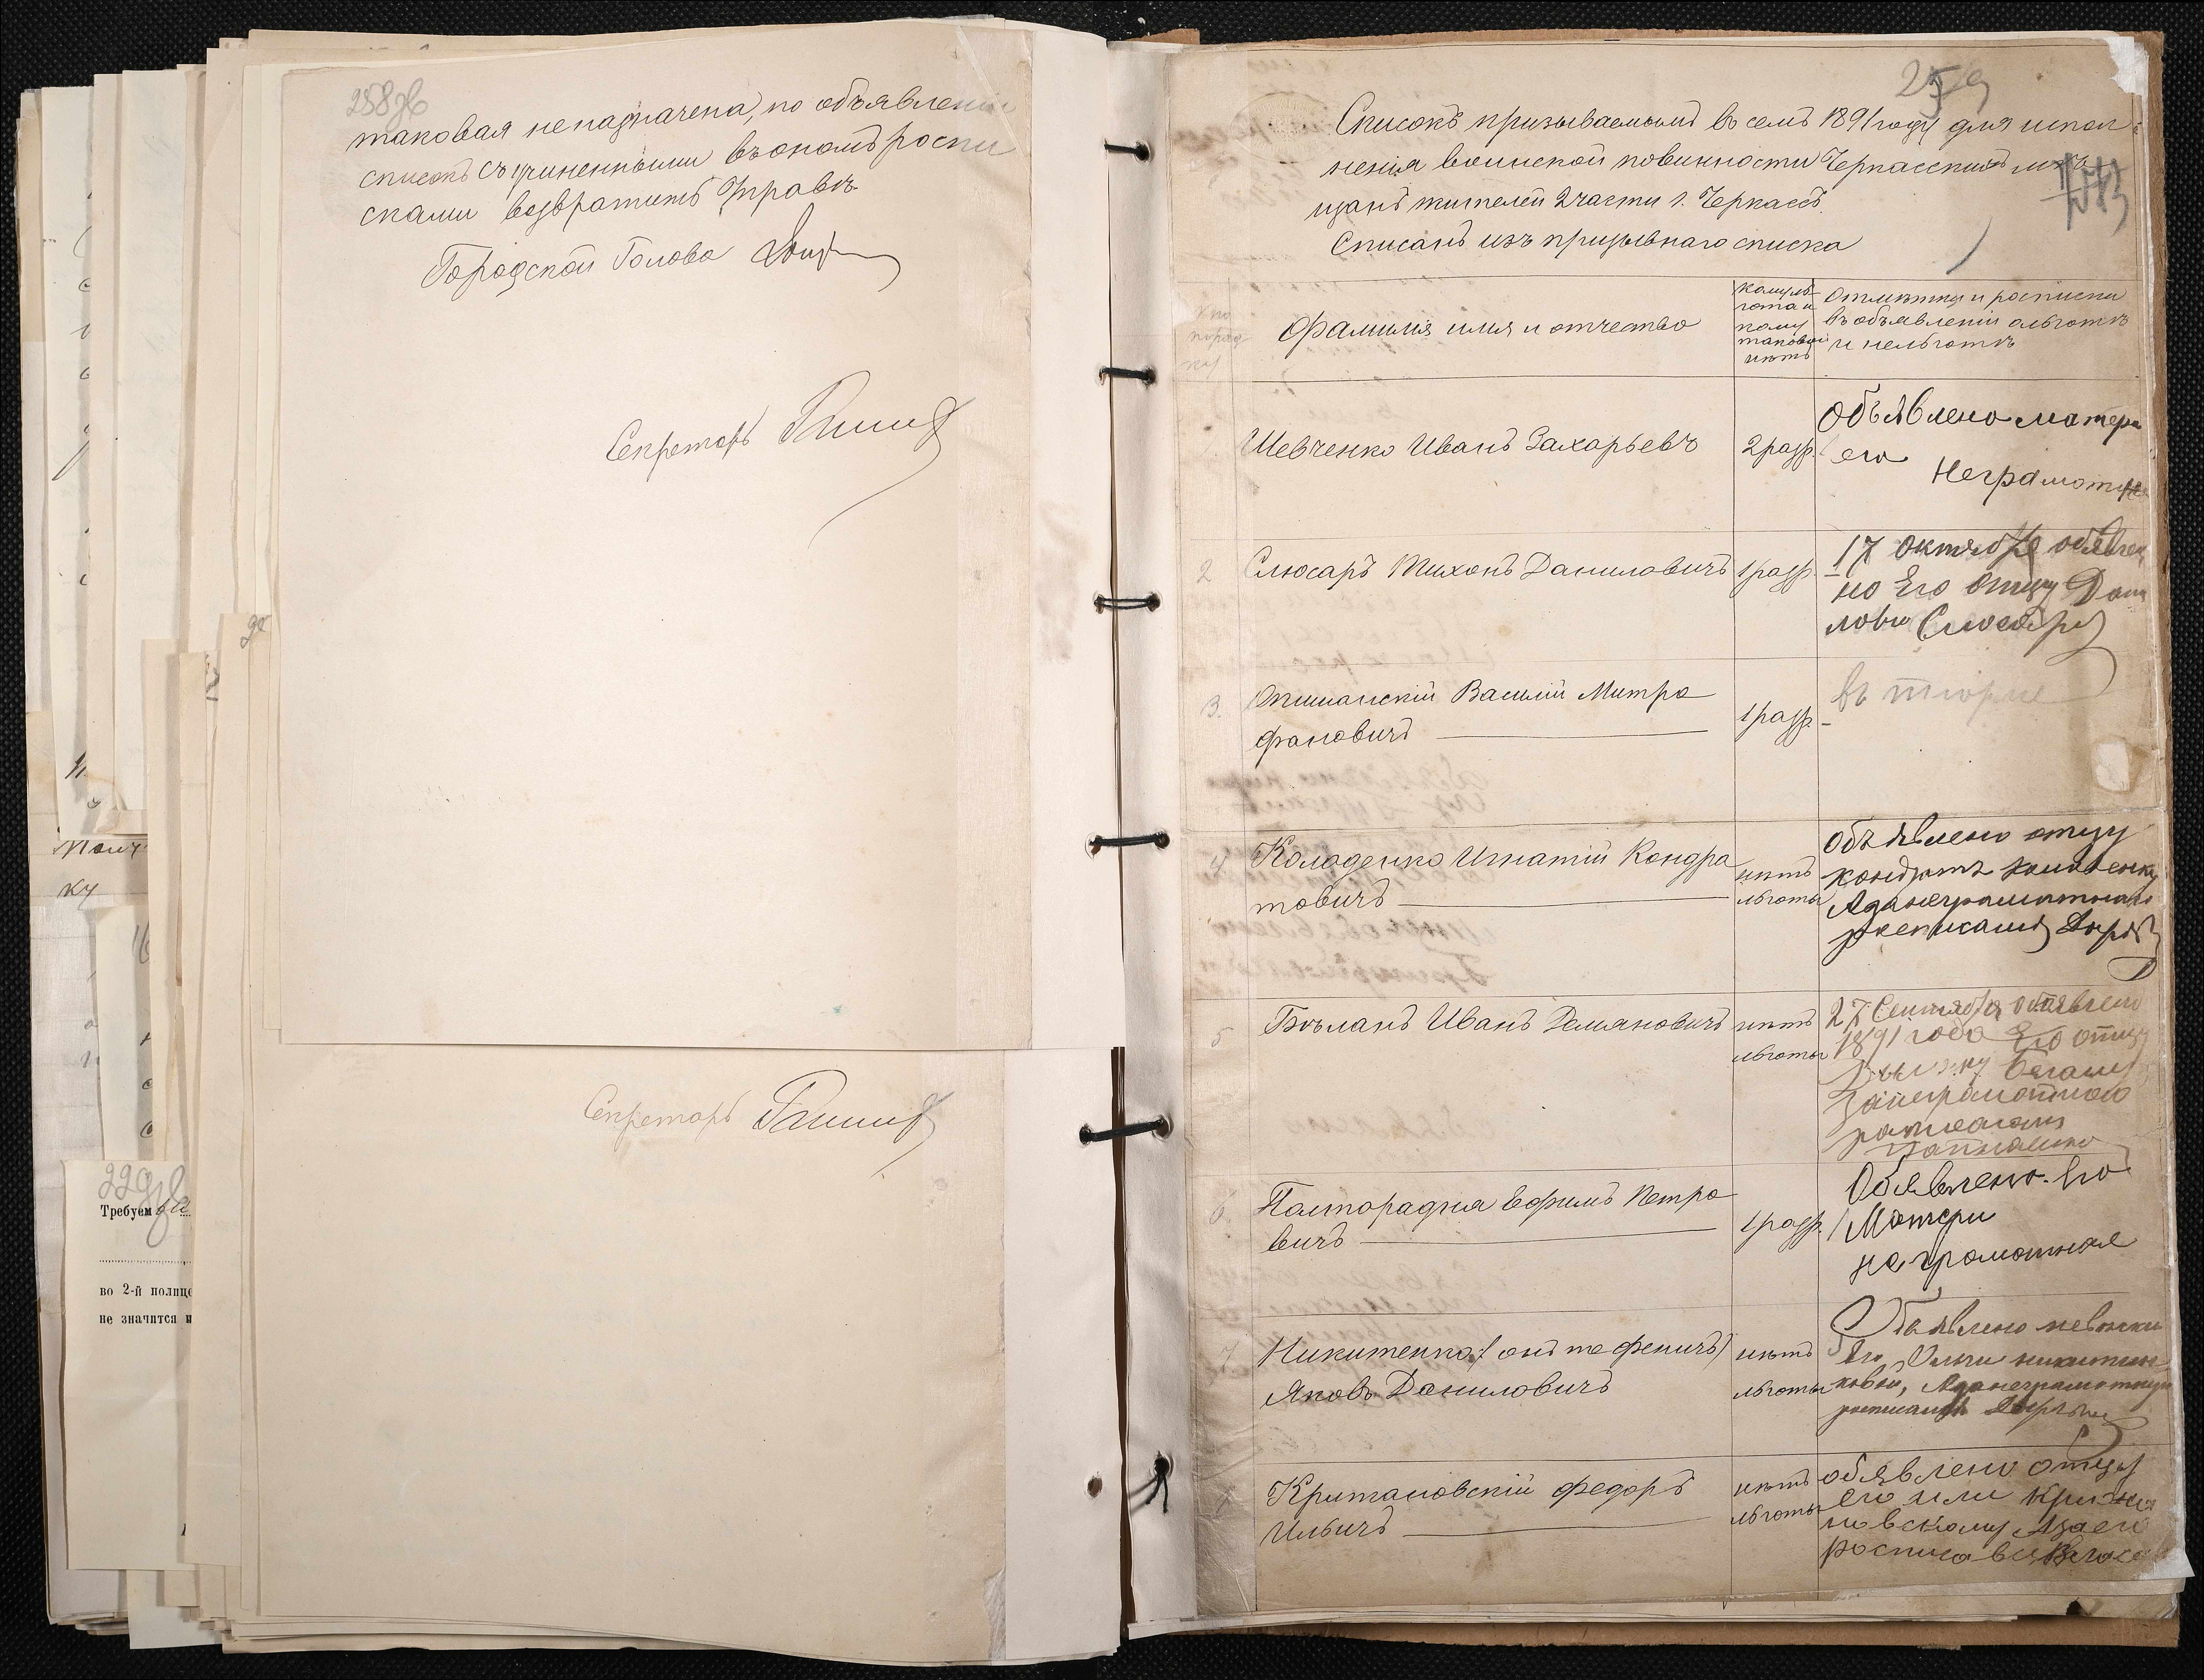 258зв
таковая неназначена, по объявленіи
списокъ съ учиненными въ ономъ роспи
сками возвратить Управѣ.
Городской Голова
Секретарь
Секретарь
229зв
Требуем
во 2-й полице
не значится и
Полу
ку
259
Списокъ призываемымъ въ семъ 1891 году для испол-
ненія воинской повинности Черкасскихъ мѣ
щанъ жителей 2 части г. Черкассъ.
Списанъ изъ призывнаго списка
Фамилія имя и отчество
кому ль-
гота и
кому
таковой
нѣтъ
Отмѣтки и росписки
въ объявленіи о льготѣ
и нельготѣ
Шевченко Иванъ Захарьевъ
2 разр.
Объявлено матери
его
Неграмотна
2
Слюсарь Тихонъ Даниловичъ
1 разр.
17 октября объявле
но Его отцу Дани
лови Слюсарь
3.
Опишанскій Василій Митро
фановичъ
1 разр.
въ тюрме
4
Колоденко Игнатій Кондра
товичъ
нѣтъ
льготы
Объявлено отцу
5
Бѣланъ Иванъ Демяновичъ
нѣтъ
льготы
27 Сентября объявлено
1891 года Его отцу
занеграмотного
6.
Полторадня Ефимъ Петро
вичъ
1 разр.
Объявлено Его
Матери
неграмотная
7
Никитенко (онъ же Феничъ)
Яковъ Даниловичъ
нѣтъ
льготы
Объявлено невѣстки
Его, Ольги никитен
ковой, Азанеграмотную
8
Крижановскій Федоръ
Ильичъ
нѣтъ
льготы
обявлено отцу
его или Крижа
новскому Азаего
росписався